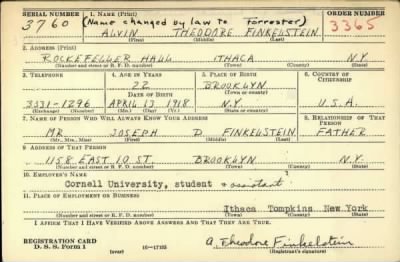 SERIAL NUMBER 1. NAME (Print) ORDER NUMBER
3760 (Name changed by law to Forrester) 3365
ALVIN THEODORE FINKELSTEIN
(First) (Middle) (Last)
2. ADDRESS (Print)
ROCKEFELLER HALL ITHACA N.Y.
(Number and street or R. F. D. number) (Town) (County) (State)
3. TELEPHONE 4. AGE IN YEARS 5. PLACE OF BIRTH 6. COUNTRY OF CITIZENSHIP
22 BROOKLYN
DATE OF BIRTH (Town or county)
3331-1296 APRIL 13 1918 N.Y. U.S.A.
(Exchange) (Number) (Mo.) (Day) (Yr.) (State or country)
7. NAME OF PERSON WHO WILL ALWAYS KNOW YOUR ADDRESS 8. RELATIONSHIP OF THAT PERSON
MR. JOSEPH D. FINKELSTEIN FATHER
(Mr., Mrs., Miss) (First) (Middle) (Last)
9. ADDRESS OF THAT PERSON
1158 EAST 10 ST. BROOKLYN N.Y.
(Number and street or R. F. D. number) (Town) (County) (State)
10. EMPLOYER'S NAME
Cornell University, student & assistant
11. PLACE OF EMPLOYMENT OR BUSINESS
Ithaca Tompkins New York
(Number and street or R. F. D. number) (Town) (County) (State)
I AFFIRM THAT I HAVE VERIFIED ABOVE ANSWERS AND THAT THEY ARE TRUE.
REGISTRATION CARD
D. S. S. Form 1 (over) 16-17105
A. Theodore Finkelstein
(Registrant's signature)